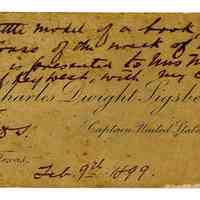 ttle model of a book,
rass of the mast of
is presented to Miss M
of Key West, with my C
Charles Dwight Sigsbe
Captain United Stat
Texas.
Feb. 9th 1899.